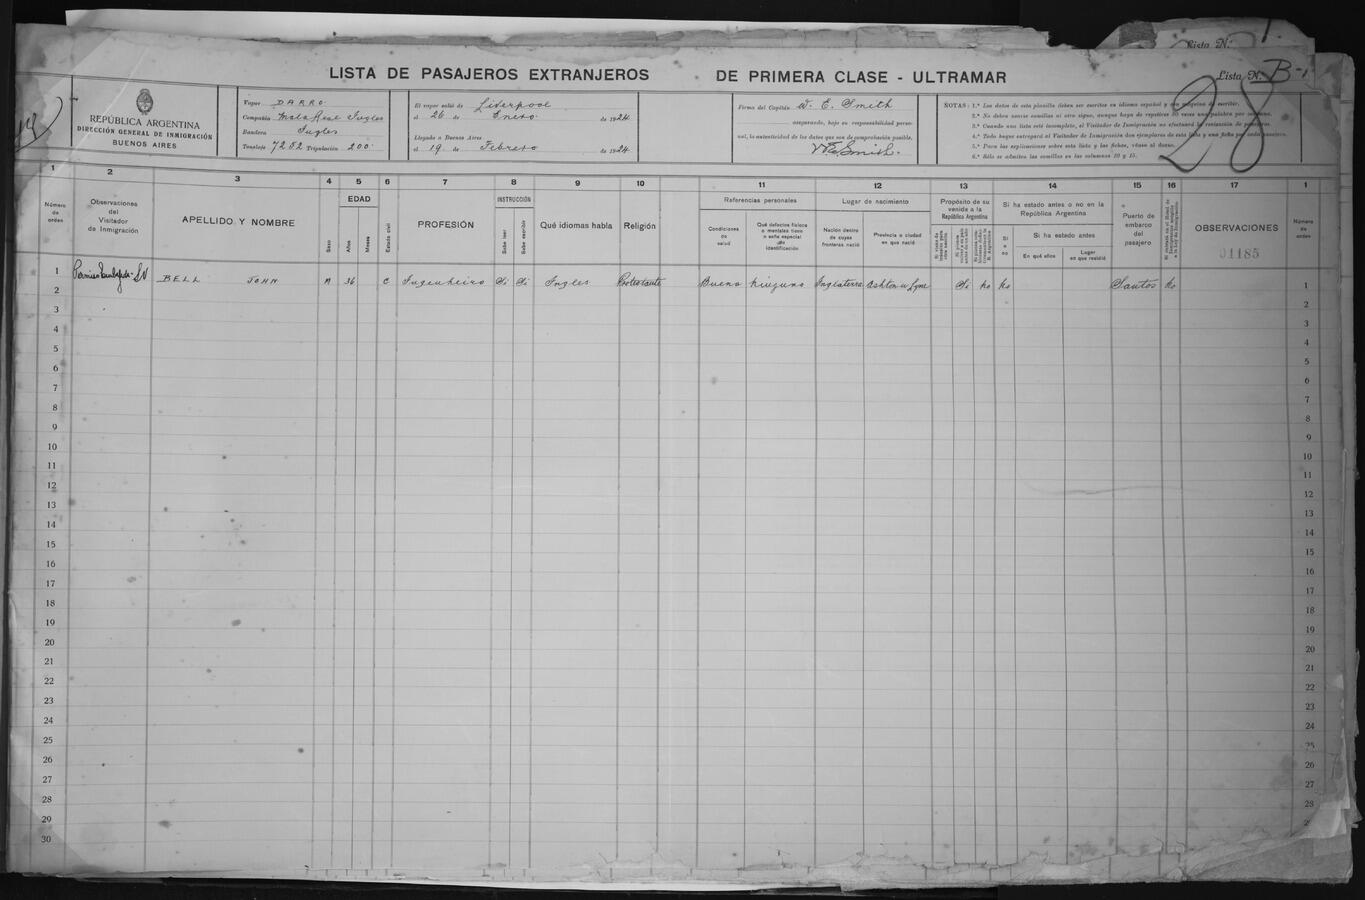 Lista N.
LISTA DE PASAJEROS EXTRANJEROS DE PRIMERA CLASE - ULTRAMAR
Lista N. B-1
28
REPÚBLICA ARGENTINA
DIRECCIÓN GENERAL DE INMIGRACIÓN
BUENOS AIRES
Vapor DARRO
Compañía Mala Real Ingles
Bandera Ingles
Tonelaje 7252 Tripulación 200
El vapor salió de Liverpool
el 26 de Enero de 1924
Llegado a Buenos Aires
el 19 de Febrero de 1924
Firma del Capitán W. E. Smith
asegurando, bajo su responsabilidad perso-
nal, la autenticidad de los datos que son de comprobación posible.
W E Smith.
NOTAS: 1.ª Los datos de esta planilla deben ser escritos en idioma español y con máquina de escribir.
2.ª No deben usarse comillas ni otro signo, aunque haya de repetirse 30 veces una palabra por columna.
3.ª Cuando una lista esté incompleta, el Visitador de Inmigración no efectuará la revisación de pasajeros.
4.ª Todo buque entregará al Visitador de Inmigración dos ejemplares de esta lista y una ficha por cada pasajero.
5.ª Para las explicaciones sobre esta lista y las fichas, véase al dorso.
6.ª Sólo se admiten las comillas en las columnas 10 y 15.
1 2 3 4 5 6 7 8 9 10 11 12 13 14 15 16 17 1
Número de orden
Observaciones del Visitador de Inmigración
APELLIDO Y NOMBRE
Sexo
EDAD
Años
Meses
Estado civil
PROFESIÓN
INSTRUCCIÓN
Sabe leer
Sabe escribir
Qué idiomas habla
Religión
Referencias personales
Condiciones de salud
Qué defectos físicos o mentales tiene o seña especial de identificación
Lugar de nacimiento
Nación dentro de cuyas fronteras nació
Provincia o ciudad en que nació
Propósito de su venida a la República Argentina
Si ha estado antes o no en la República Argentina
Si o no
Si ha estado antes
En qué años
Lugar en que residió
Puerto de embarco del pasajero
OBSERVACIONES
01185
Número de orden
1 BELL JOHN M 36 C Ingenheiro Si Si Ingles Protestante Buena Ninguna Inglaterra Ashton u Lyne Si No No Santos No 1
2 2
3 3
4 4
5 5
6 6
7 7
8 8
9 9
10 10
11 11
12 12
13 13
14 14
15 15
16 16
17 17
18 18
19 19
20 20
21 21
22 22
23 23
24 24
25 25
26 26
27 27
28 28
29
30